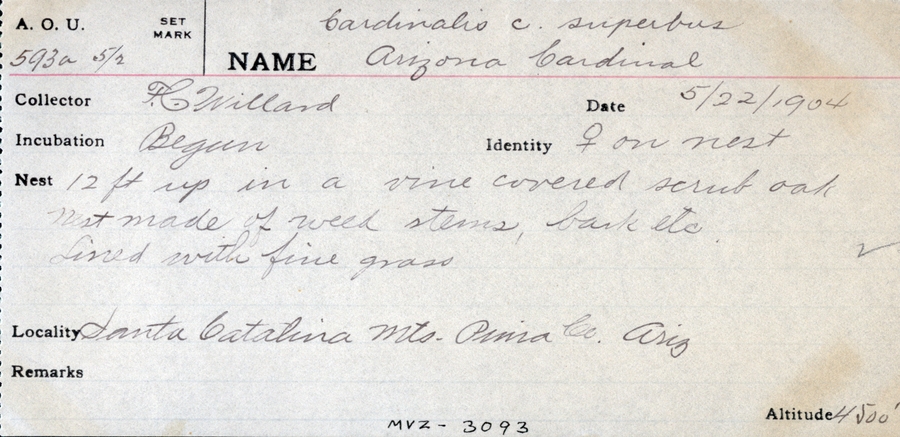 A. O. U. SET MARK Cardinalis c. superbus
593a 5/2 NAME Arizona Cardinal
Collector FC Willard Date 5/22/1904
Incubation Begun Identity ♀ on nest
Nest 12 ft up in a vine covered scrub oak
Nest made of weed stems, bark etc.
Lined with fine grass
Locality Santa Catalina Mts. Pima Co. Ariz
Remarks
Altitude 4500'
MVZ - 3093